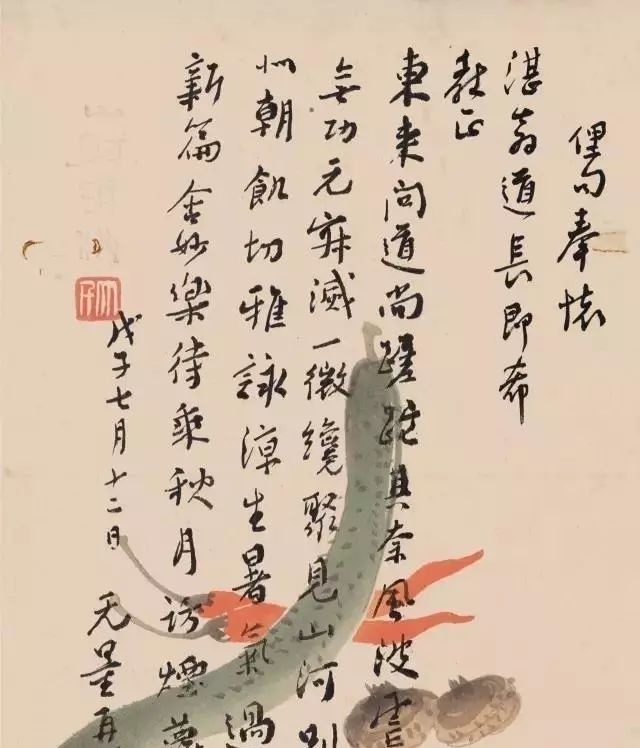 俚句奉懷
湛翁道長即希
教正
東来问道尚蹉跎其奈風波
無功元寂滅一微纔聚見山河別
朝飢切雅詠涼生暑氣過
新篇含妙樂待乘秋月訪煙蘿
戊子七月十二日 无量再